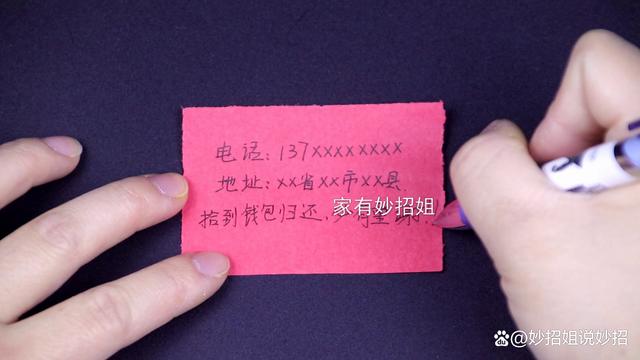 电话: 137xxxxxxxx
地址: xx省xx市xx县
拾到钱包归还,
家有妙招姐
@妙招姐说妙招